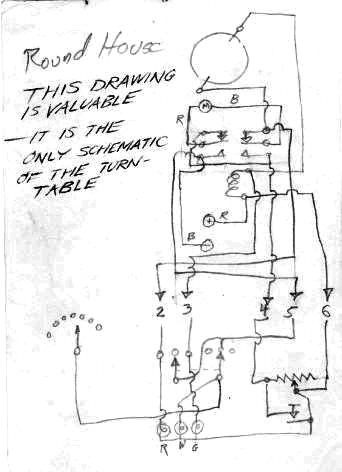 Round House
THIS DRAWING
IS VALUABLE
— IT IS THE
ONLY SCHEMATIC
OF THE TURN-
TABLE
M
B
R
+
R
B
−
2 3 4 5 6
R W G